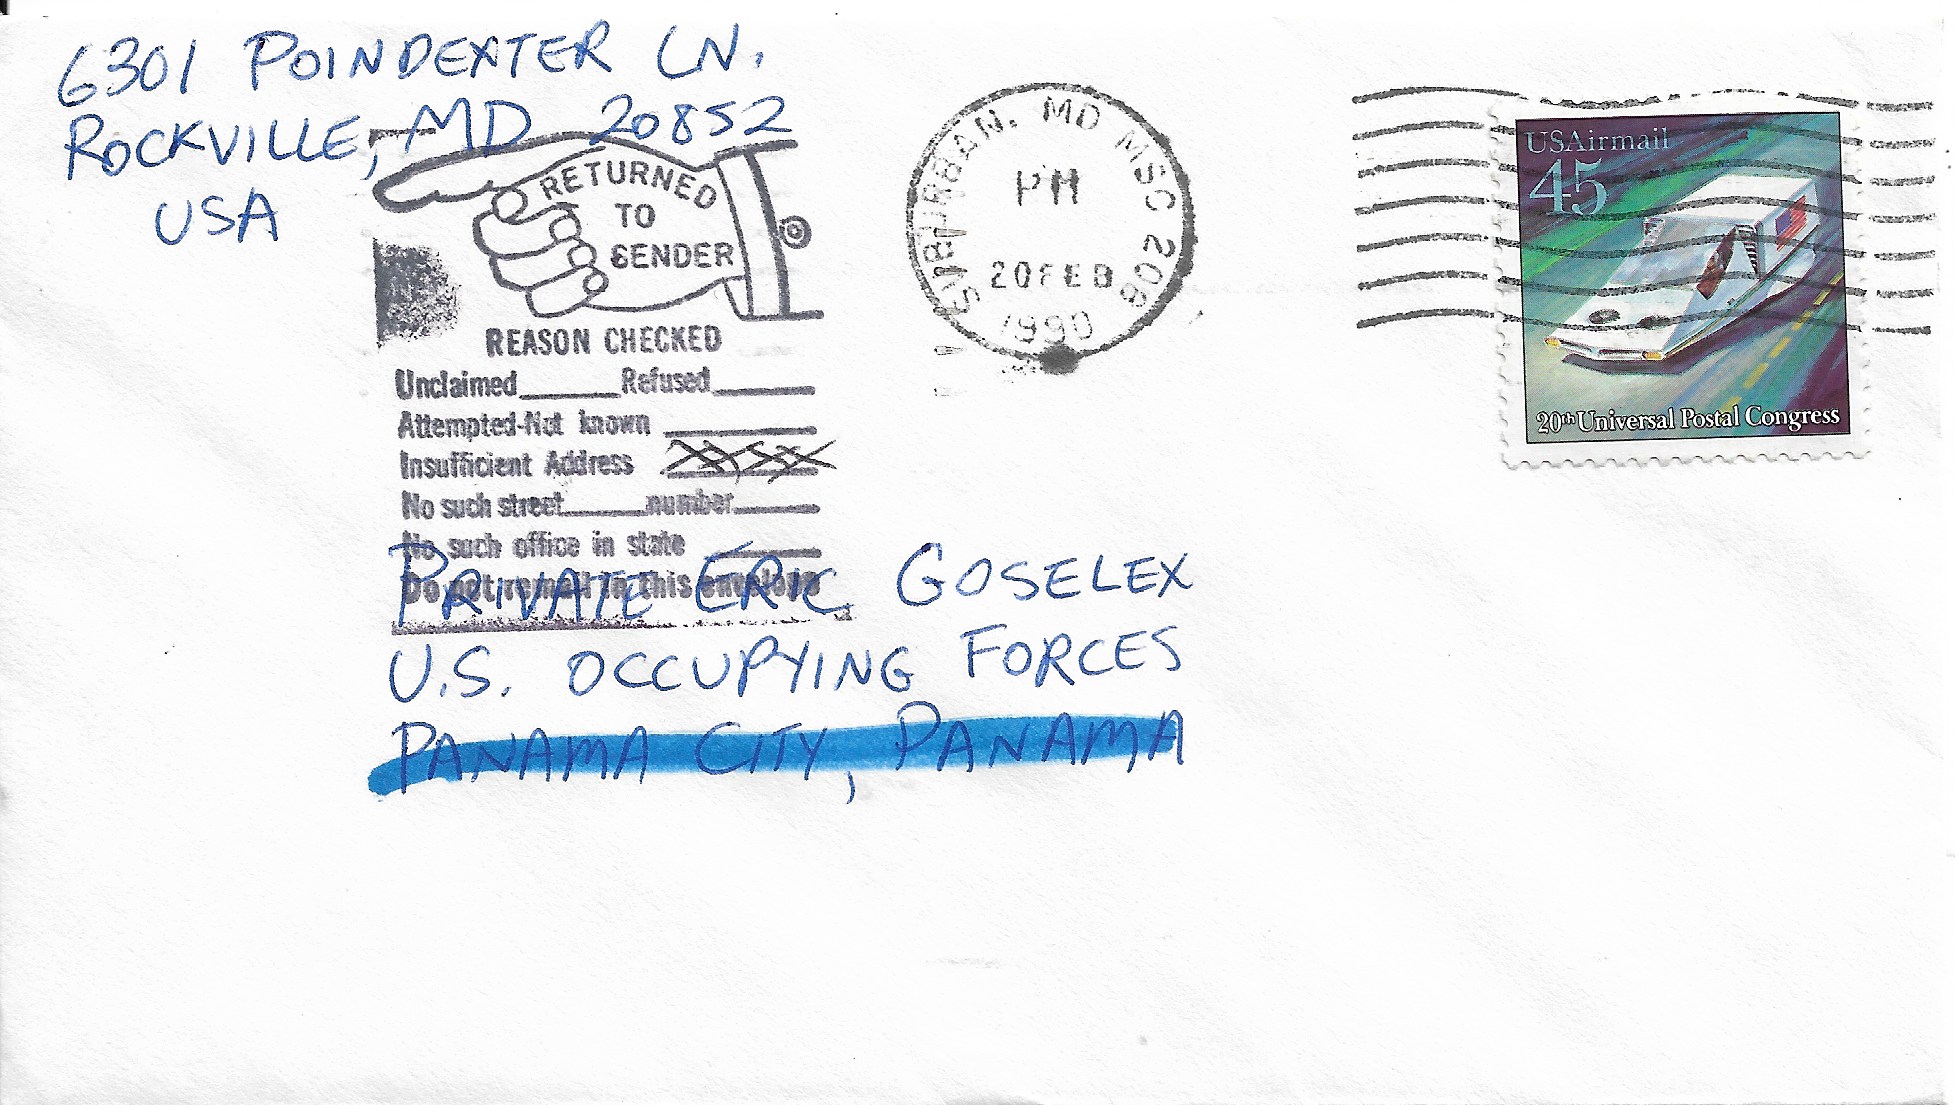 6301 POINDEXTER LN.
ROCKVILLE, MD 20852
USA
RETURNED
TO
SENDER
REASON CHECKED
Unclaimed Refused
Attempted-Not known
Insufficient Address XXXXX
No such street number
No such office in state
Do not remail in this envelope
SUBURBAN, MD MSC 208
PM
20 FEB
1990
USAirmail
45
20th Universal Postal Congress
PRIVATE ERIC GOSELEX
U.S. OCCUPYING FORCES
PANAMA CITY, PANAMA